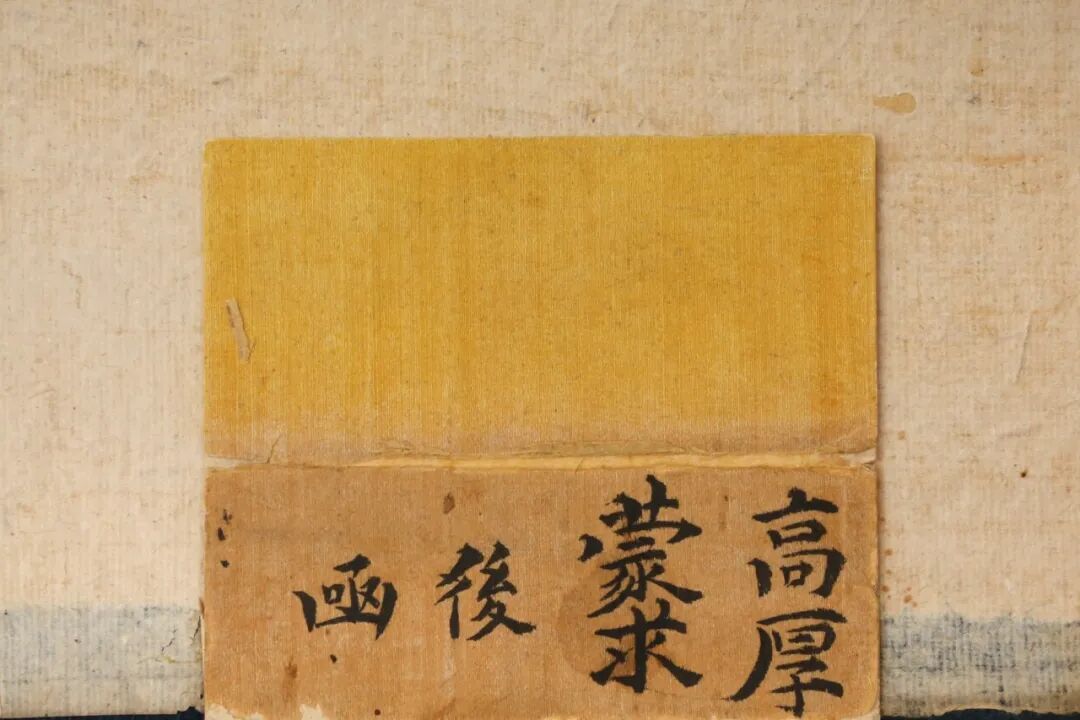 高厚
蒙求
後
凾